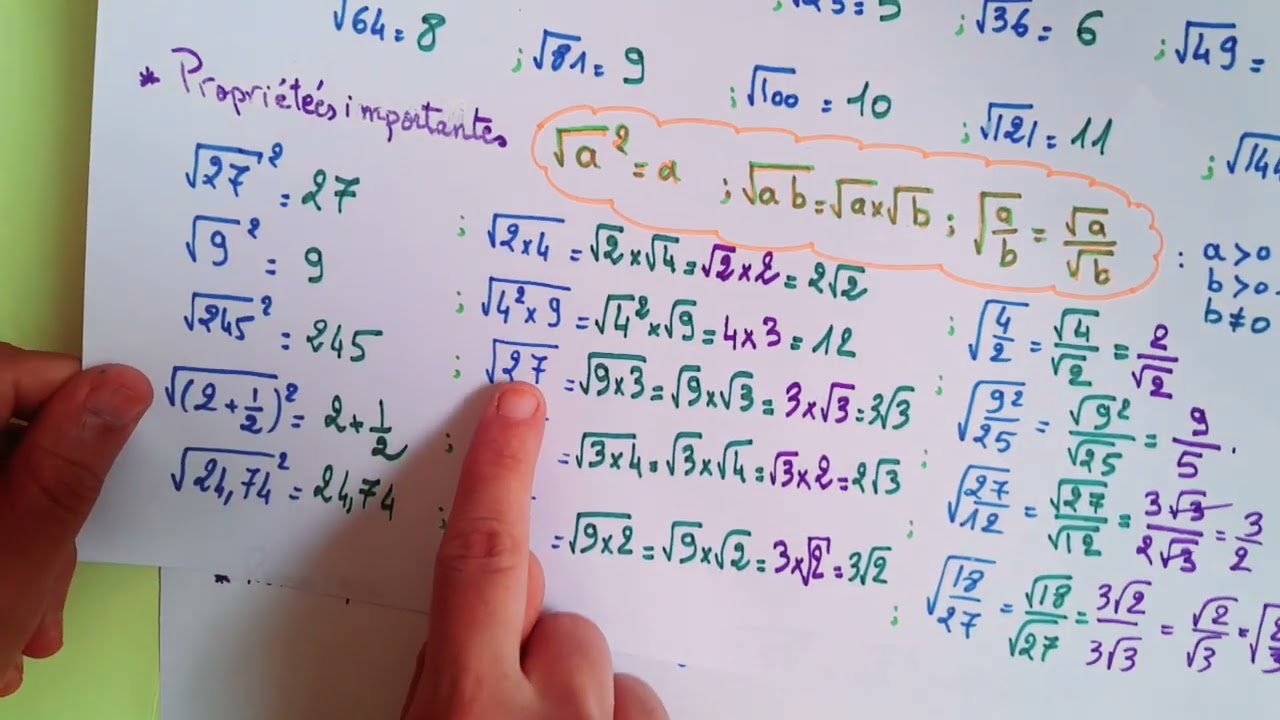 √64 = 8 ; √81 = 9 ; √100 = 10 ; √121 = 11
; √36 = 6 ; √49 =
* Propriétéés importantes
√a² = a ; √ab = √a×√b ; √(a/b) = √a/√b : a>0 b>0 b≠0
√27² = 27
√9² = 9
√245² = 245
√(2+1/2)² = 2+1/2
√24,74² = 24,74
; √2×4 = √2×√4 = √2×2 = 2√2
; √4²×9 = √4²×√9 = 4×3 = 12
; √27 = √9×3 = √9×√3 = 3×√3 = 3√3
; = √3×4 = √3×√4 = √3×2 = 2√3
; = √9×2 = √9×√2 = 3×√2 = 3√2
; √(4/2) = √4/√2 = 2/√2
; √(9²/25) = √9²/√25 = 9/5 .
; √(27/12) = √27/√12 = 3√3/2√3 = 3/2
; √(18/27) = √18/√27 = 3√2/3√3 = √2/√3 =